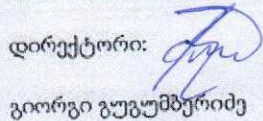 დირექტორი:
გიორგი გუგუმბერიძე